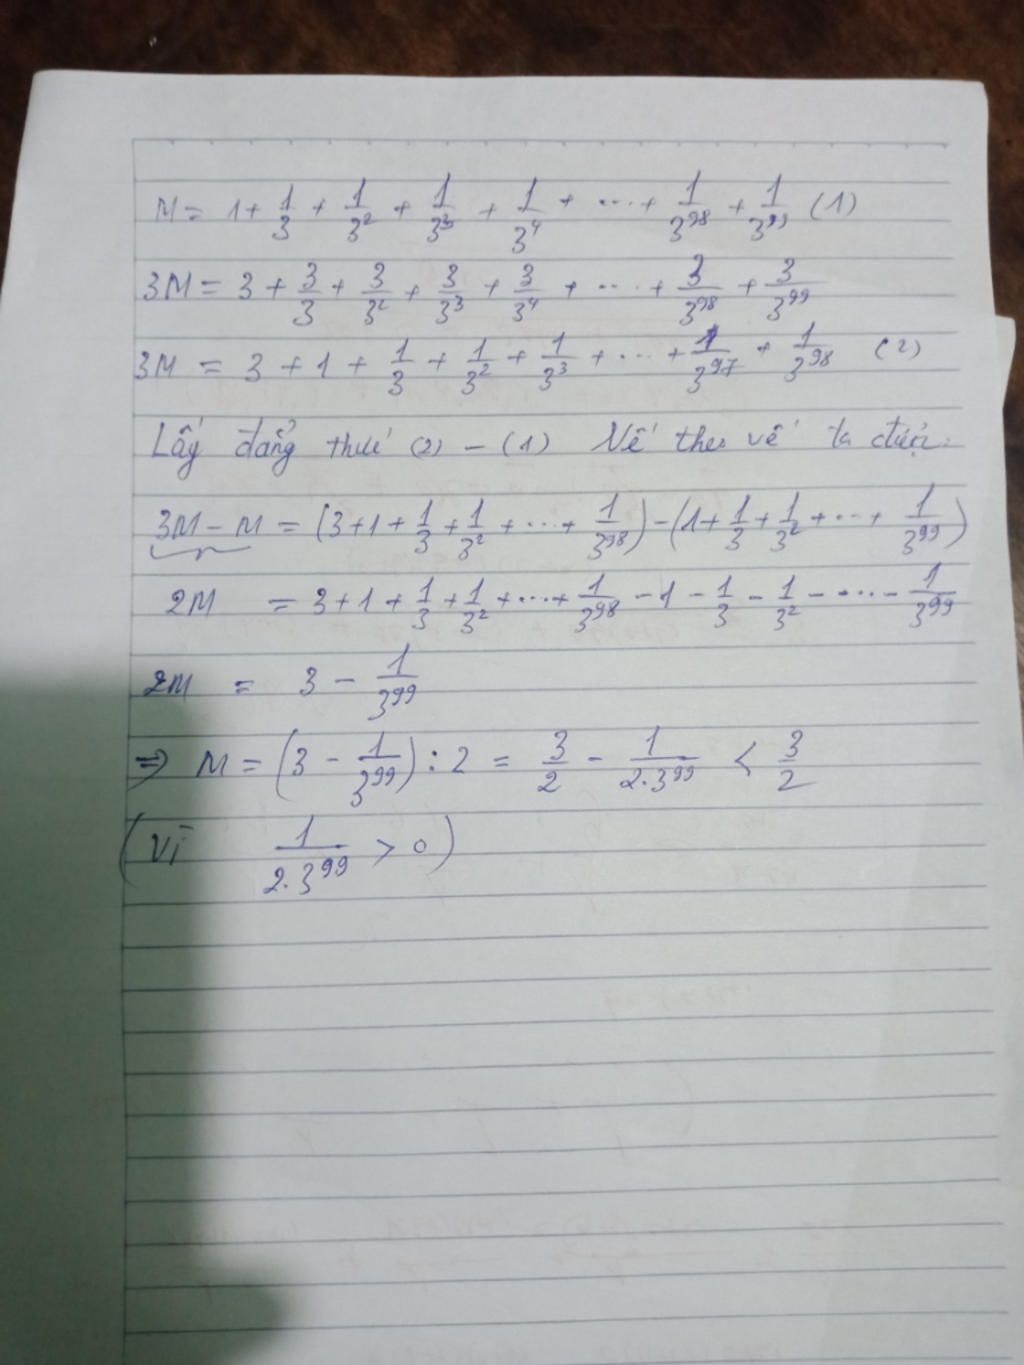 M = 1 + 1/3 + 1/3² + 1/3³ + 1/3⁴ + ... + 1/3⁹⁸ + 1/3⁹⁹ (1)
3M = 3 + 3/3 + 3/3² + 3/3³ + 3/3⁴ + ... + 3/3⁹⁸ + 3/3⁹⁹
3M = 3 + 1 + 1/3 + 1/3² + 1/3³ + ... + 1/3⁹⁷ + 1/3⁹⁸ (2)
Lấy đẳng thức (2) - (1) Vế theo vế ta được:
3M - M = (3 + 1 + 1/3 + 1/3² + ... + 1/3⁹⁸) - (1 + 1/3 + 1/3² + ... + 1/3⁹⁹)
2M = 3 + 1 + 1/3 + 1/3² + ... + 1/3⁹⁸ - 1 - 1/3 - 1/3² - ... - 1/3⁹⁹
2M = 3 - 1/3⁹⁹
⇒ M = (3 - 1/3⁹⁹) : 2 = 3/2 - 1/2.3⁹⁹ < 3/2
(Vì 1/2.3⁹⁹ > 0)